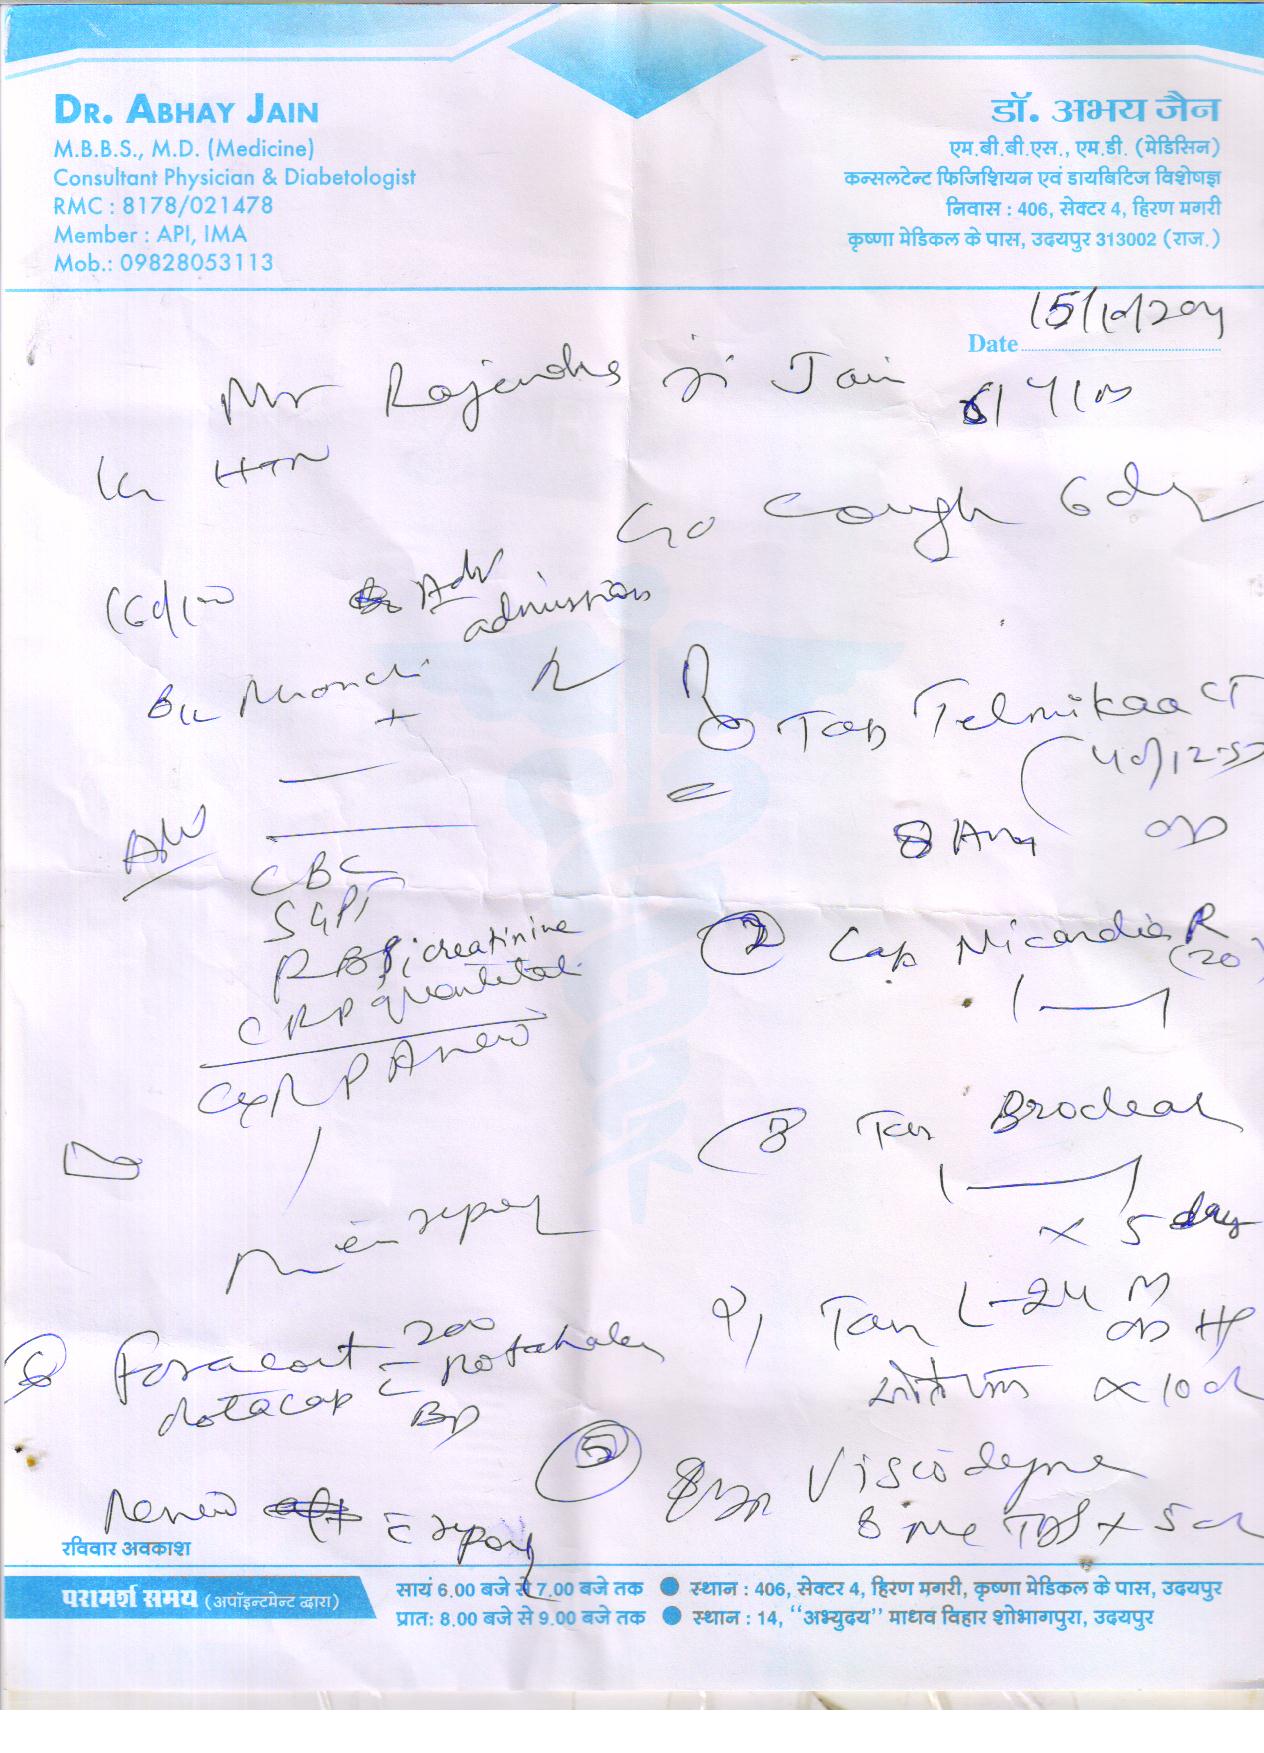 DR. ABHAY JAIN
M.B.B.S., M.D. (Medicine)
Consultant Physician & Diabetologist
RMC : 8178/021478
Member : API, IMA
Mob.: 09828053113
डॉ. अभय जैन
एम.बी.बी.एस., एम.डी. (मेडिसिन)
कन्सलटेन्ट फिजिशियन एवं डायबिटिज विशेषज्ञ
निवास : 406, सेक्टर 4, हिरण मगरी
कृष्णा मेडिकल के पास, उदयपुर 313002 (राज.)
Date
Mr Rajendra ji Jain
HTN
C/o Cough 6 day
Adv
admission
B/L Rhonchi
+
Adv
CBC
SGPT
RBS; creatinine
CRP quantitat
CXR PA view
Tab Telmikaa CT
(40/12.5)
8 AM OD
2 Cap Nicardia R
(20)
3 Tab
x 5 day
Tab
OD
x 10 d
5 Viscodyne
TDS x 5 d
6 Foracort 200
rotacap c rotahaler
BD
Review c report
रविवार अवकाश
परामर्श समय (अपॉइन्टमेन्ट द्वारा)
सायं 6.00 बजे से 7.00 बजे तक ● स्थान : 406, सेक्टर 4, हिरण मगरी, कृष्णा मेडिकल के पास, उदयपुर
प्रात: 8.00 बजे से 9.00 बजे तक ● स्थान : 14, ‘‘अभ्युदय’’ माधव विहार शोभागपुरा, उदयपुर